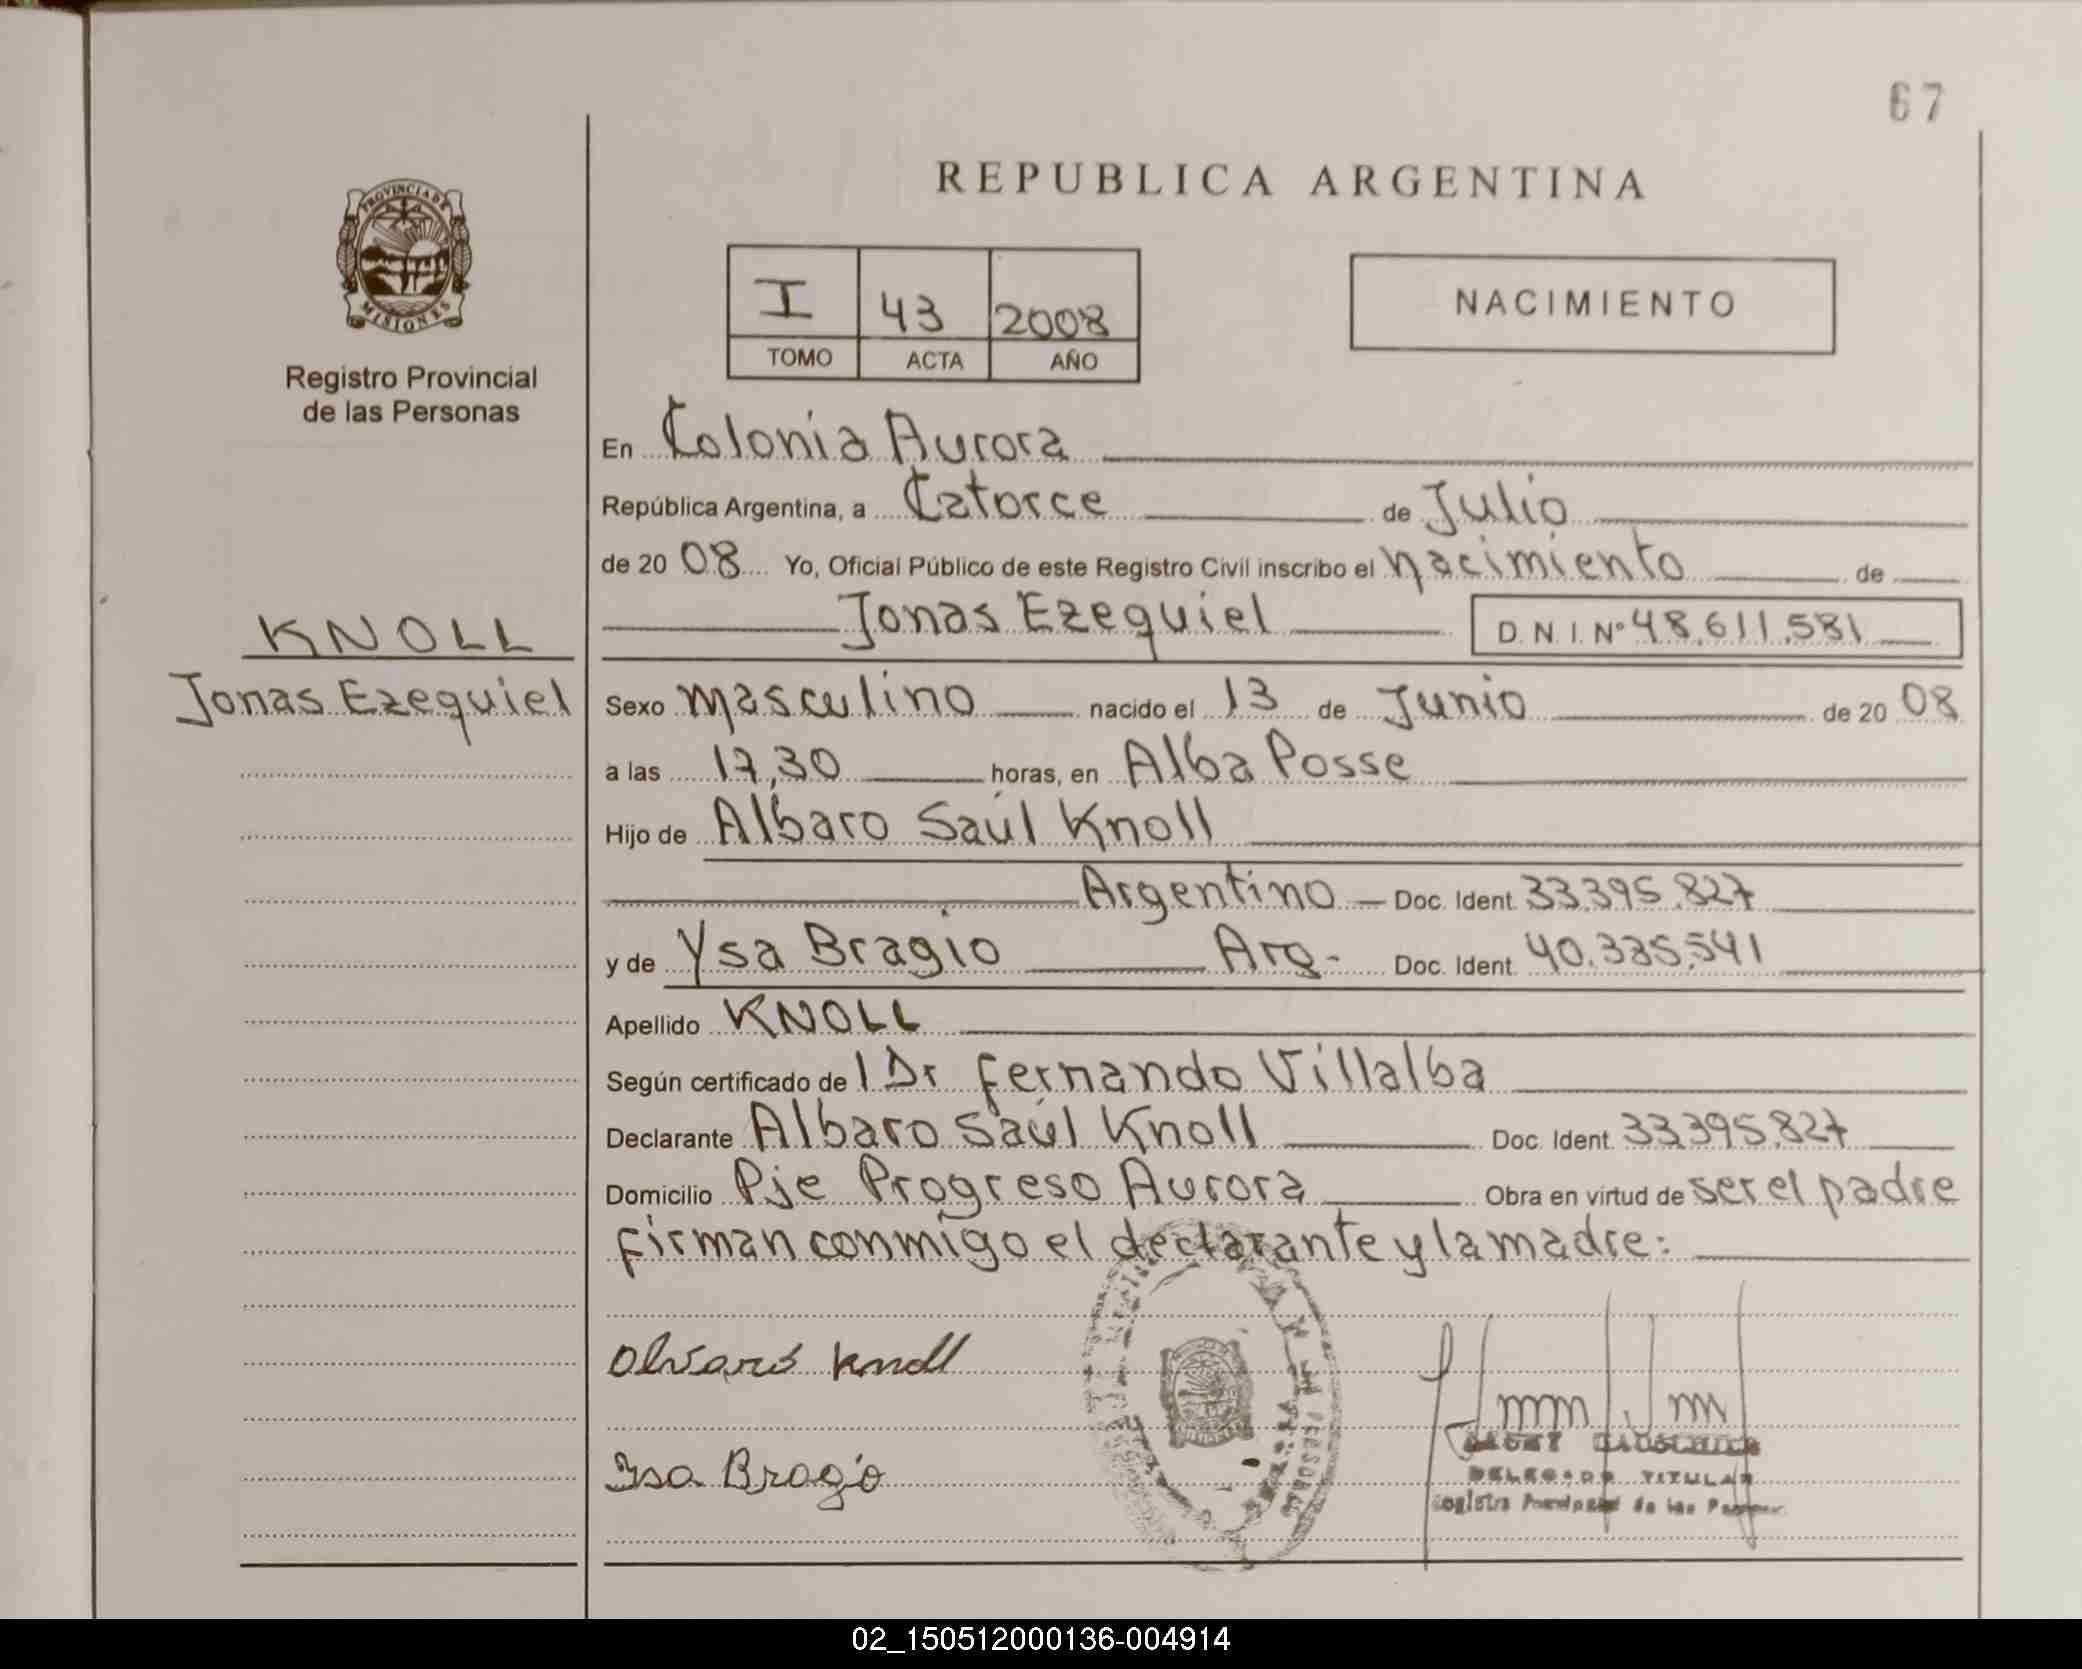 67
REPUBLICA ARGENTINA
PROVINCIA DE
MISIONES
Registro Provincial
de las Personas
I 43 2008
TOMO ACTA AÑO
NACIMIENTO
En Colonia Aurora
República Argentina, a Catorce de Julio
de 20 08 Yo, Oficial Público de este Registro Civil inscribo el nacimiento de
Jonas Ezequiel D.N.I. Nº 48.611.581
KNOLL
Jonas Ezequiel
Sexo masculino nacido el 13 de Junio de 20 08
a las 17,30 horas, en Alba Posse
Hijo de Albaro Saúl Knoll
Argentino Doc. Ident. 33.395.827
y de Ysa Bragio Arg- Doc. Ident. 40.335.541
Apellido KNOLL
Según certificado de l Dr Fernando Villalba
Declarante Albaro Saúl Knoll Doc. Ident. 33.395.827
Domicilio Pje Progreso Aurora Obra en virtud de ser el padre
firman conmigo el declarante y la madre:
Knoll
Ysa Bragio
DELEGADO TITULAR
02_150512000136-004914